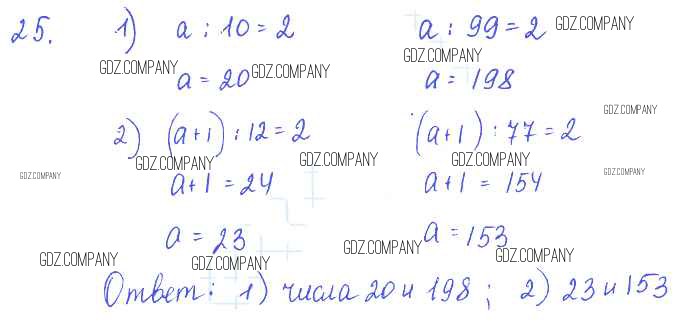 25. 1) a : 10 = 2 a : 99 = 2
GDZ.COMPANY GDZ.COMPANY GDZ.COMPANY
a = 20 a = 198
GDZ.COMPANY
2) (a+1) : 12 = 2 (a+1) : 77 = 2
GDZ.COMPANY GDZ.COMPANY GDZ.COMPANY
GDZ.COMPANY a+1 = 24 a+1 = 154 GDZ.COMPANY
a = 23 a = 153
GDZ.COMPANY GDZ.COMPANY GDZ.COMPANY GDZ.COMPANY
Ответ: 1) числа 20 и 198 ; 2) 23 и 153